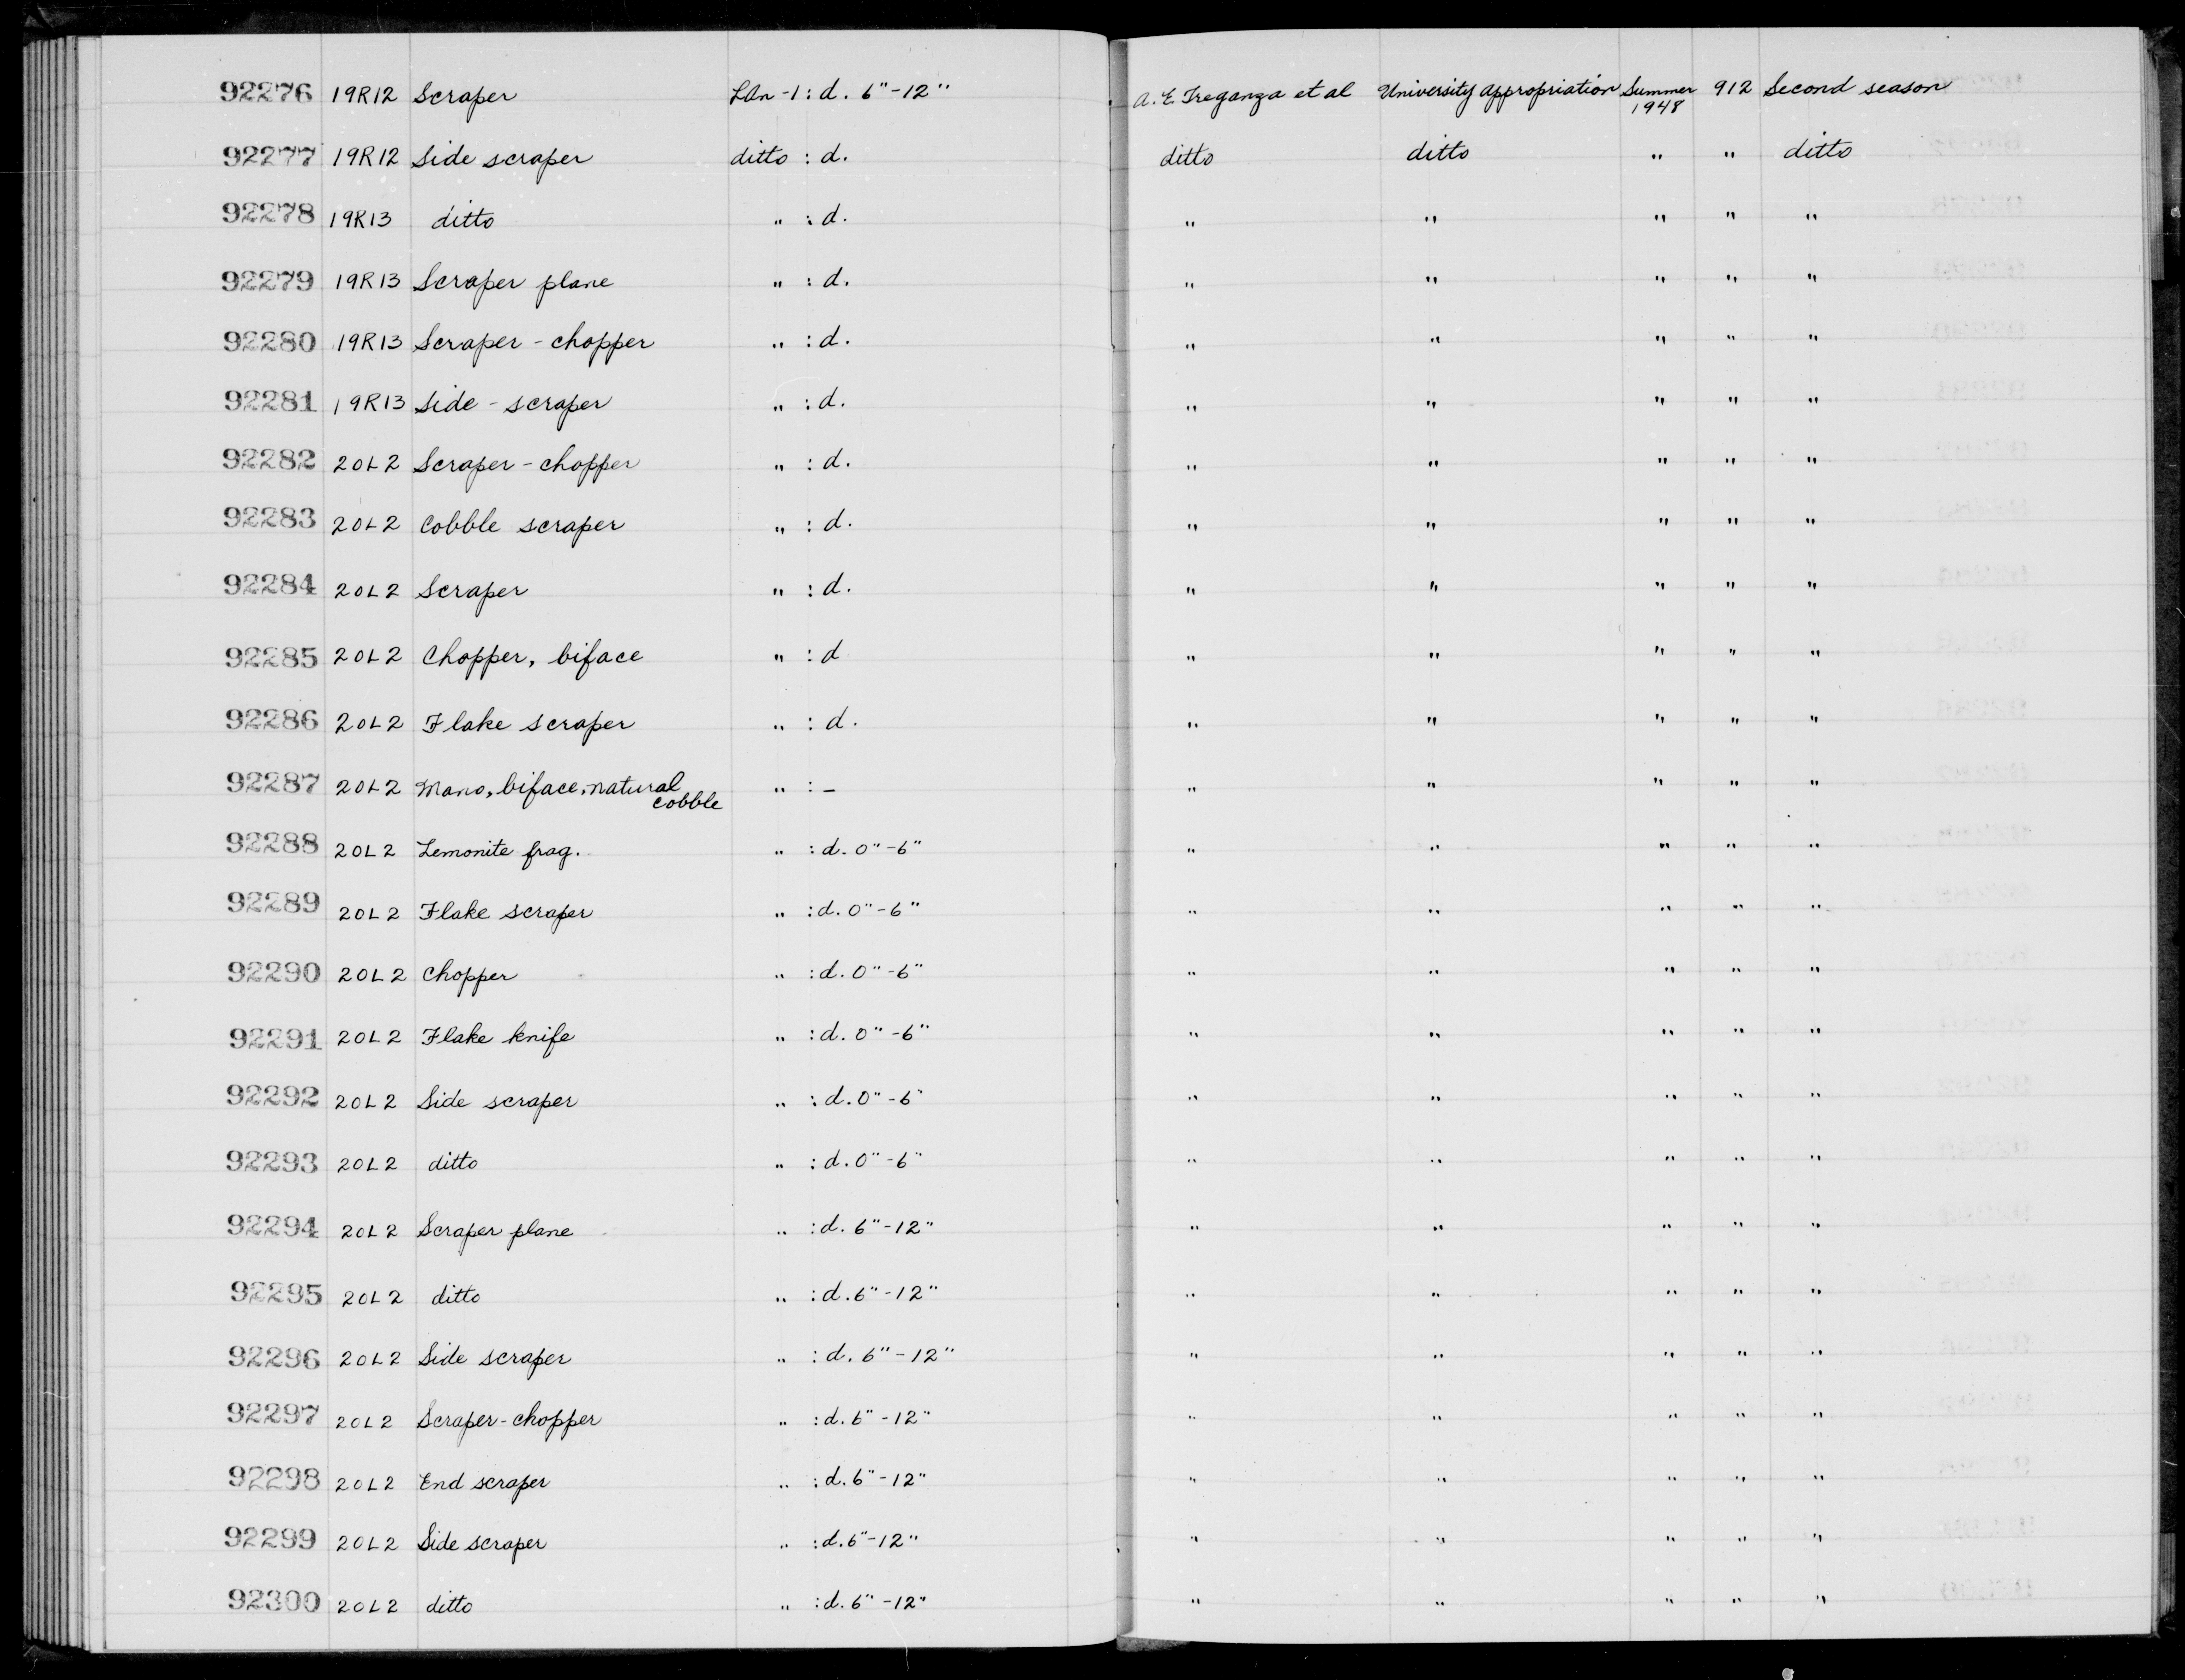 92276 19R12 Scraper LAn-1 : d. 6"-12" A. E. Treganza et al University appropriation Summer 1948 912 Second season
92277 19R12 Side scraper ditto : d. ditto ditto " " ditto
92278 19R13 ditto " : d. " " " " "
92279 19R13 Scraper plane " : d. " " " " "
92280 19R13 Scraper - chopper " : d. " " " " "
92281 19R13 Side - scraper " : d. " " " " "
92282 20L2 Scraper - chopper " : d. " " " " "
92283 20L2 Cobble scraper " : d. " " " " "
92284 20L2 Scraper " : d. " " " " "
92285 20L2 Chopper, biface " : d " " " " "
92286 20L2 Flake scraper " : d. " " " " "
92287 20L2 Mano, biface, natural cobble " : - " " " " "
92288 20L2 Lemonite frag. " : d. 0"-6" " " " " "
92289 20L2 Flake scraper " : d. 0"-6" " " " " "
92290 20L2 Chopper " : d. 0"-6" " " " " "
92291 20L2 Flake knife " : d. 0"-6" " " " " "
92292 20L2 Side scraper " : d. 0"-6" " " " " "
92293 20L2 ditto " : d. 0"-6" " " " " "
92294 20L2 Scraper plane " : d. 6"-12" " " " " "
92295 20L2 ditto " : d. 6"-12" " " " " "
92296 20L2 Side scraper " : d. 6"-12" " " " " "
92297 20L2 Scraper-chopper " : d. 6"-12" " " " " "
92298 20L2 End scraper " : d. 6"-12" " " " " "
92299 20L2 Side scraper " : d. 6"-12" " " " " "
92300 20L2 ditto " : d. 6"-12" " " " " "